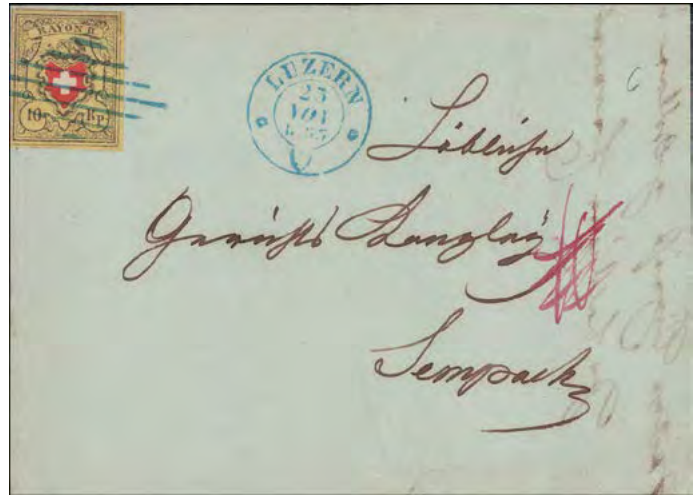 RAYON II.
10 Rp.
LUZERN
23
NOV
Löbliche
Gerichts Kanzley
Sempach